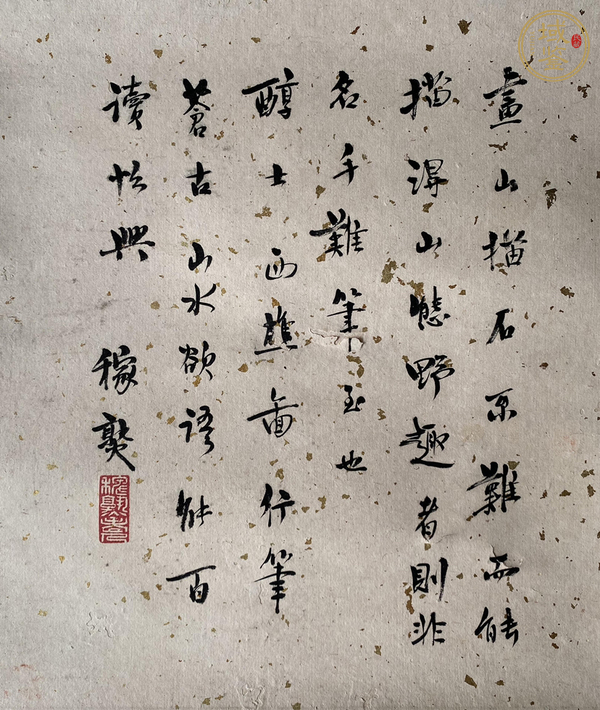 畫山描石難而能
描得山態野趣者則非
名手難筆至也
醇士西樵圖行筆
蒼古山水欲語能百
讀怡興 稼